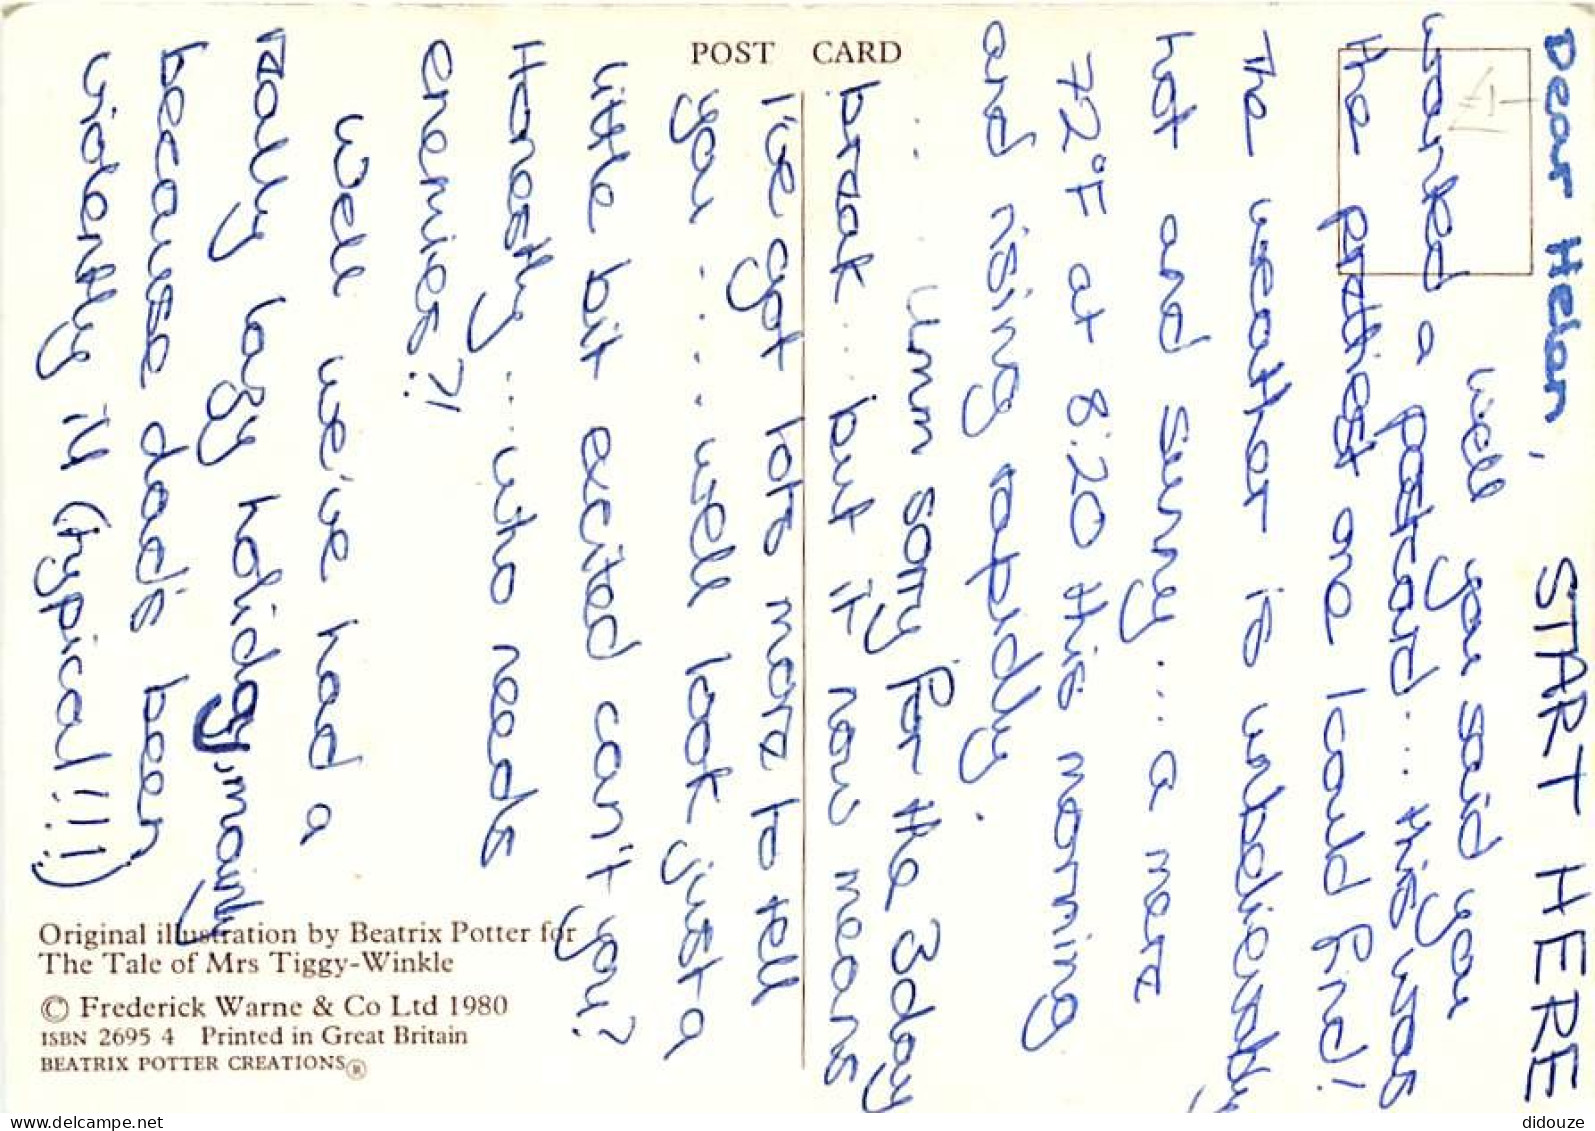 START HERE
Dear Helen,
Well you said you
wanted a postcard... this was
the prettiest one I could find!
The weather is unbelievably
hot and sunny... a mere
72°F at 8:20 this morning
and rising rapidly.
... Umm sorry for the 3 day
break... but it now means
I've got lots more to tell
you .... well look just a
little bit excited can't you?
Honestly... who needs
enemies?!
Well we've had a
really lazy holiday, mainly
because dad's been
violently ill (typical!!!)
POST CARD
£1-
Original illustration by Beatrix Potter for
The Tale of Mrs Tiggy-Winkle
© Frederick Warne & Co Ltd 1980
ISBN 2695 4 Printed in Great Britain
BEATRIX POTTER CREATIONS®
www.delcampe.net
didouze